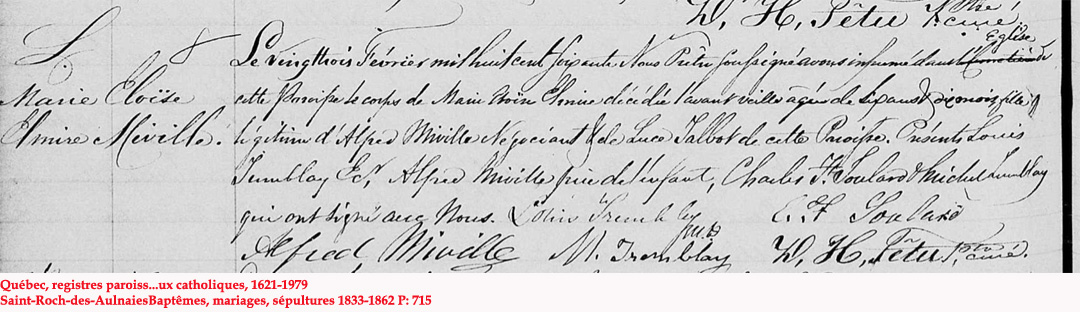 D. H. Têtu Ptre curé
S
Eglise
Le vingt trois Février mil huit cent soixante Nous Prêtre soussigné avons inhumé dans le cimetière de
Marie Eloïse
cette Paroisse le corps de Marie Eloïse Elmire décédée l'avant veille agée de six ans & dix mois fille
Elmire Miville.
légitime d'Alfred Miville Négociant & de Luce Talbot de cette Paroisse. Présents Louis
Tremblay Ecr, Alfred Miville père de l'enfant, Charles F. Soulard & Michel Tremblay
qui ont signé avec Nous. Louis Tremblay C. F. Soulard
M.D
Alfred Miville M. Tremblay D. H. Têtu Ptre curé.
Québec, registres paroiss...ux catholiques, 1621-1979
Saint-Roch-des-AulnaiesBaptêmes, mariages, sépultures 1833-1862 P: 715